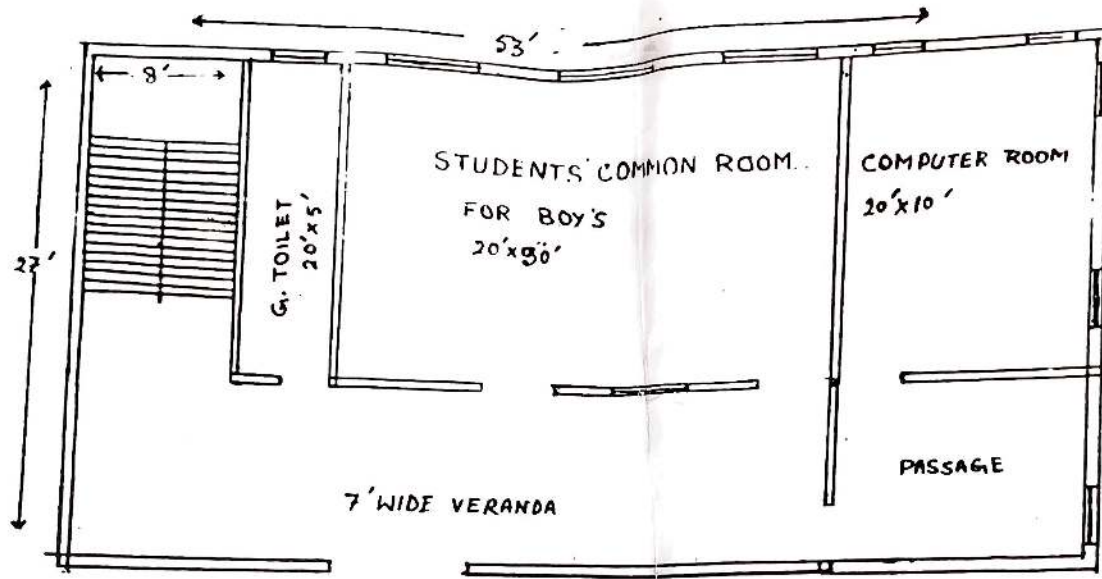 53'
8'
27'
G. TOILET
20'x5'
STUDENTS' COMMON ROOM
FOR BOY'S
20'x30'
COMPUTER ROOM
20'x10'
PASSAGE
7' WIDE VERANDA